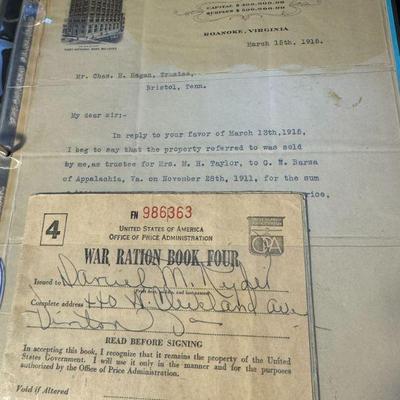 CAPITAL $400,000.00
SURPLUS $500,000.00
ROANOKE, VIRGINIA
FIRST NATIONAL BANK BUILDING
March 15th, 1915.
Mr. Chas. H. Hagan, Trustee,
Bristol, Tenn.
My dear sir:-
In reply to your favor of March 13th, 1915,
I beg to say that the property referred to was sold
by me, as trustee for Mrs. M. H. Taylor, to G. W.
of Appalachia, Va. on November 28th, 1911, for the sum
4
FN 986363
UNITED STATES OF AMERICA
OFFICE OF PRICE ADMINISTRATION
OPA
WAR RATION BOOK FOUR
Issued to Daniel M.
Complete address Cleveland Ave
Vinton Va
READ BEFORE SIGNING
In accepting this book, I recognize that it remains the property of the United
States Government. I will use it only in the manner and for the purposes
authorized by the Office of Price Administration.
Void if Altered